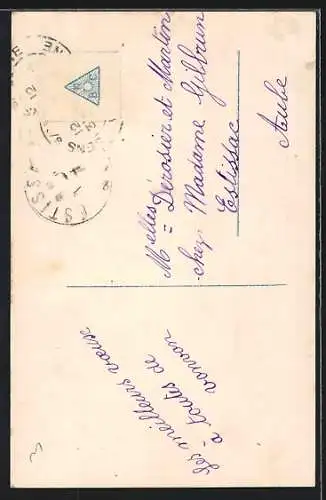 Melles Derosier et Martin
chez Madame Gilbrun
Estissac
Aube
Les meilleurs vœux
à toutes de
ESTISSA